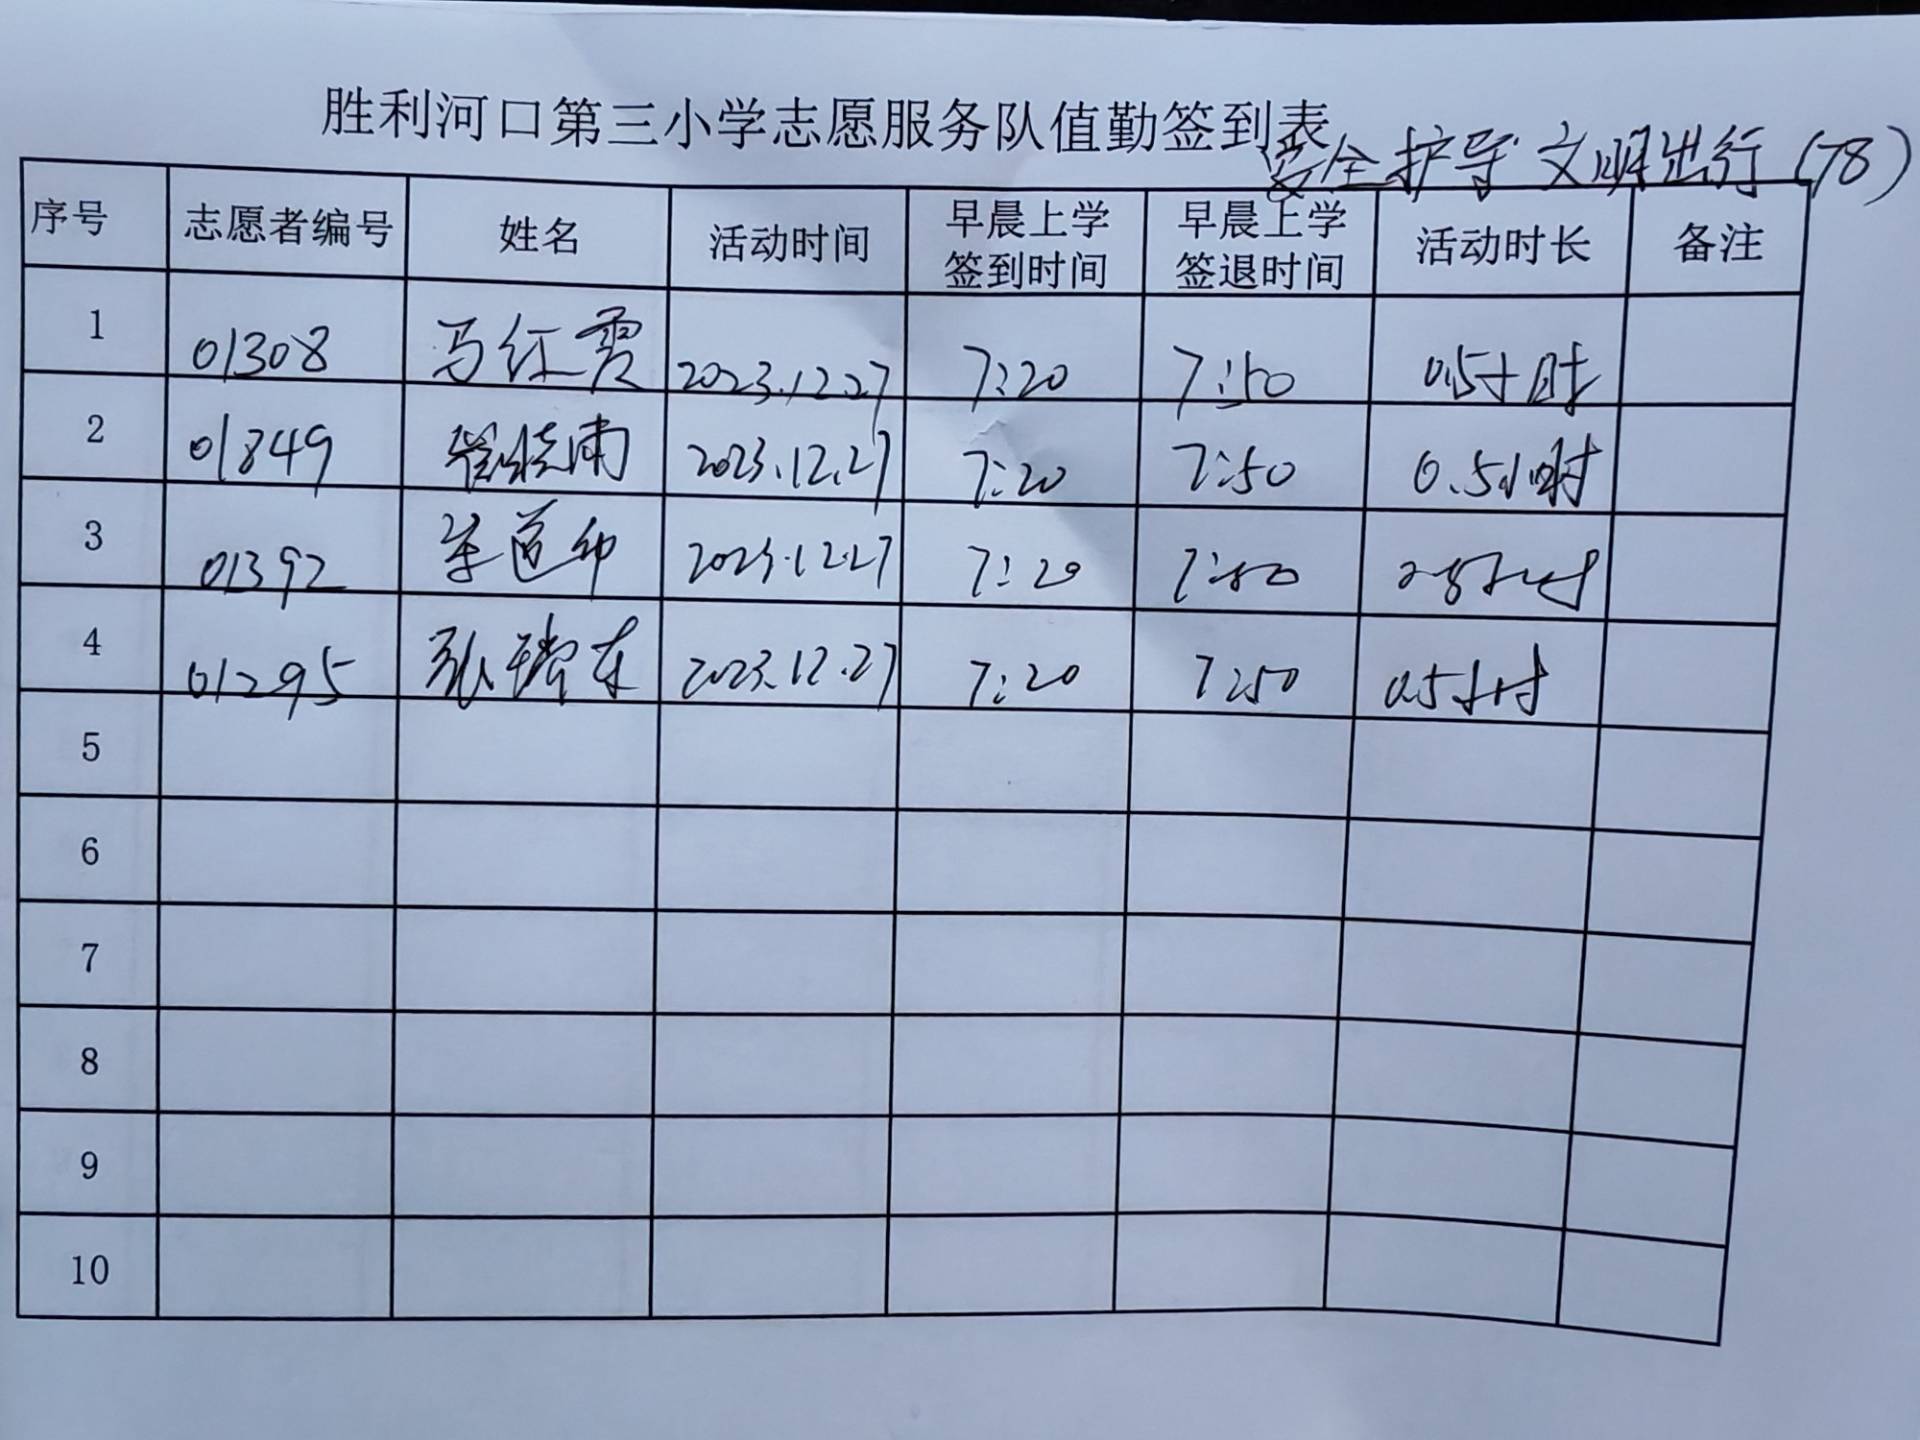 胜利河口第三小学志愿服务队值勤签到表
安全护导 文明出行 (78)
序号 志愿者编号 姓名 活动时间 早晨上学签到时间 早晨上学签退时间 活动时长 备注
1 01308 马红霞 2023.12.27 7:20 7:50 0.5小时
2 01849 崔晓雨 2023.12.27 7:20 7:50 0.5小时
3 01392 2023.12.27 7:20 7:50 0.5小时
4 01295 张瑞东 2023.12.27 7:20 7:50 0.5小时
5
6
7
8
9
10